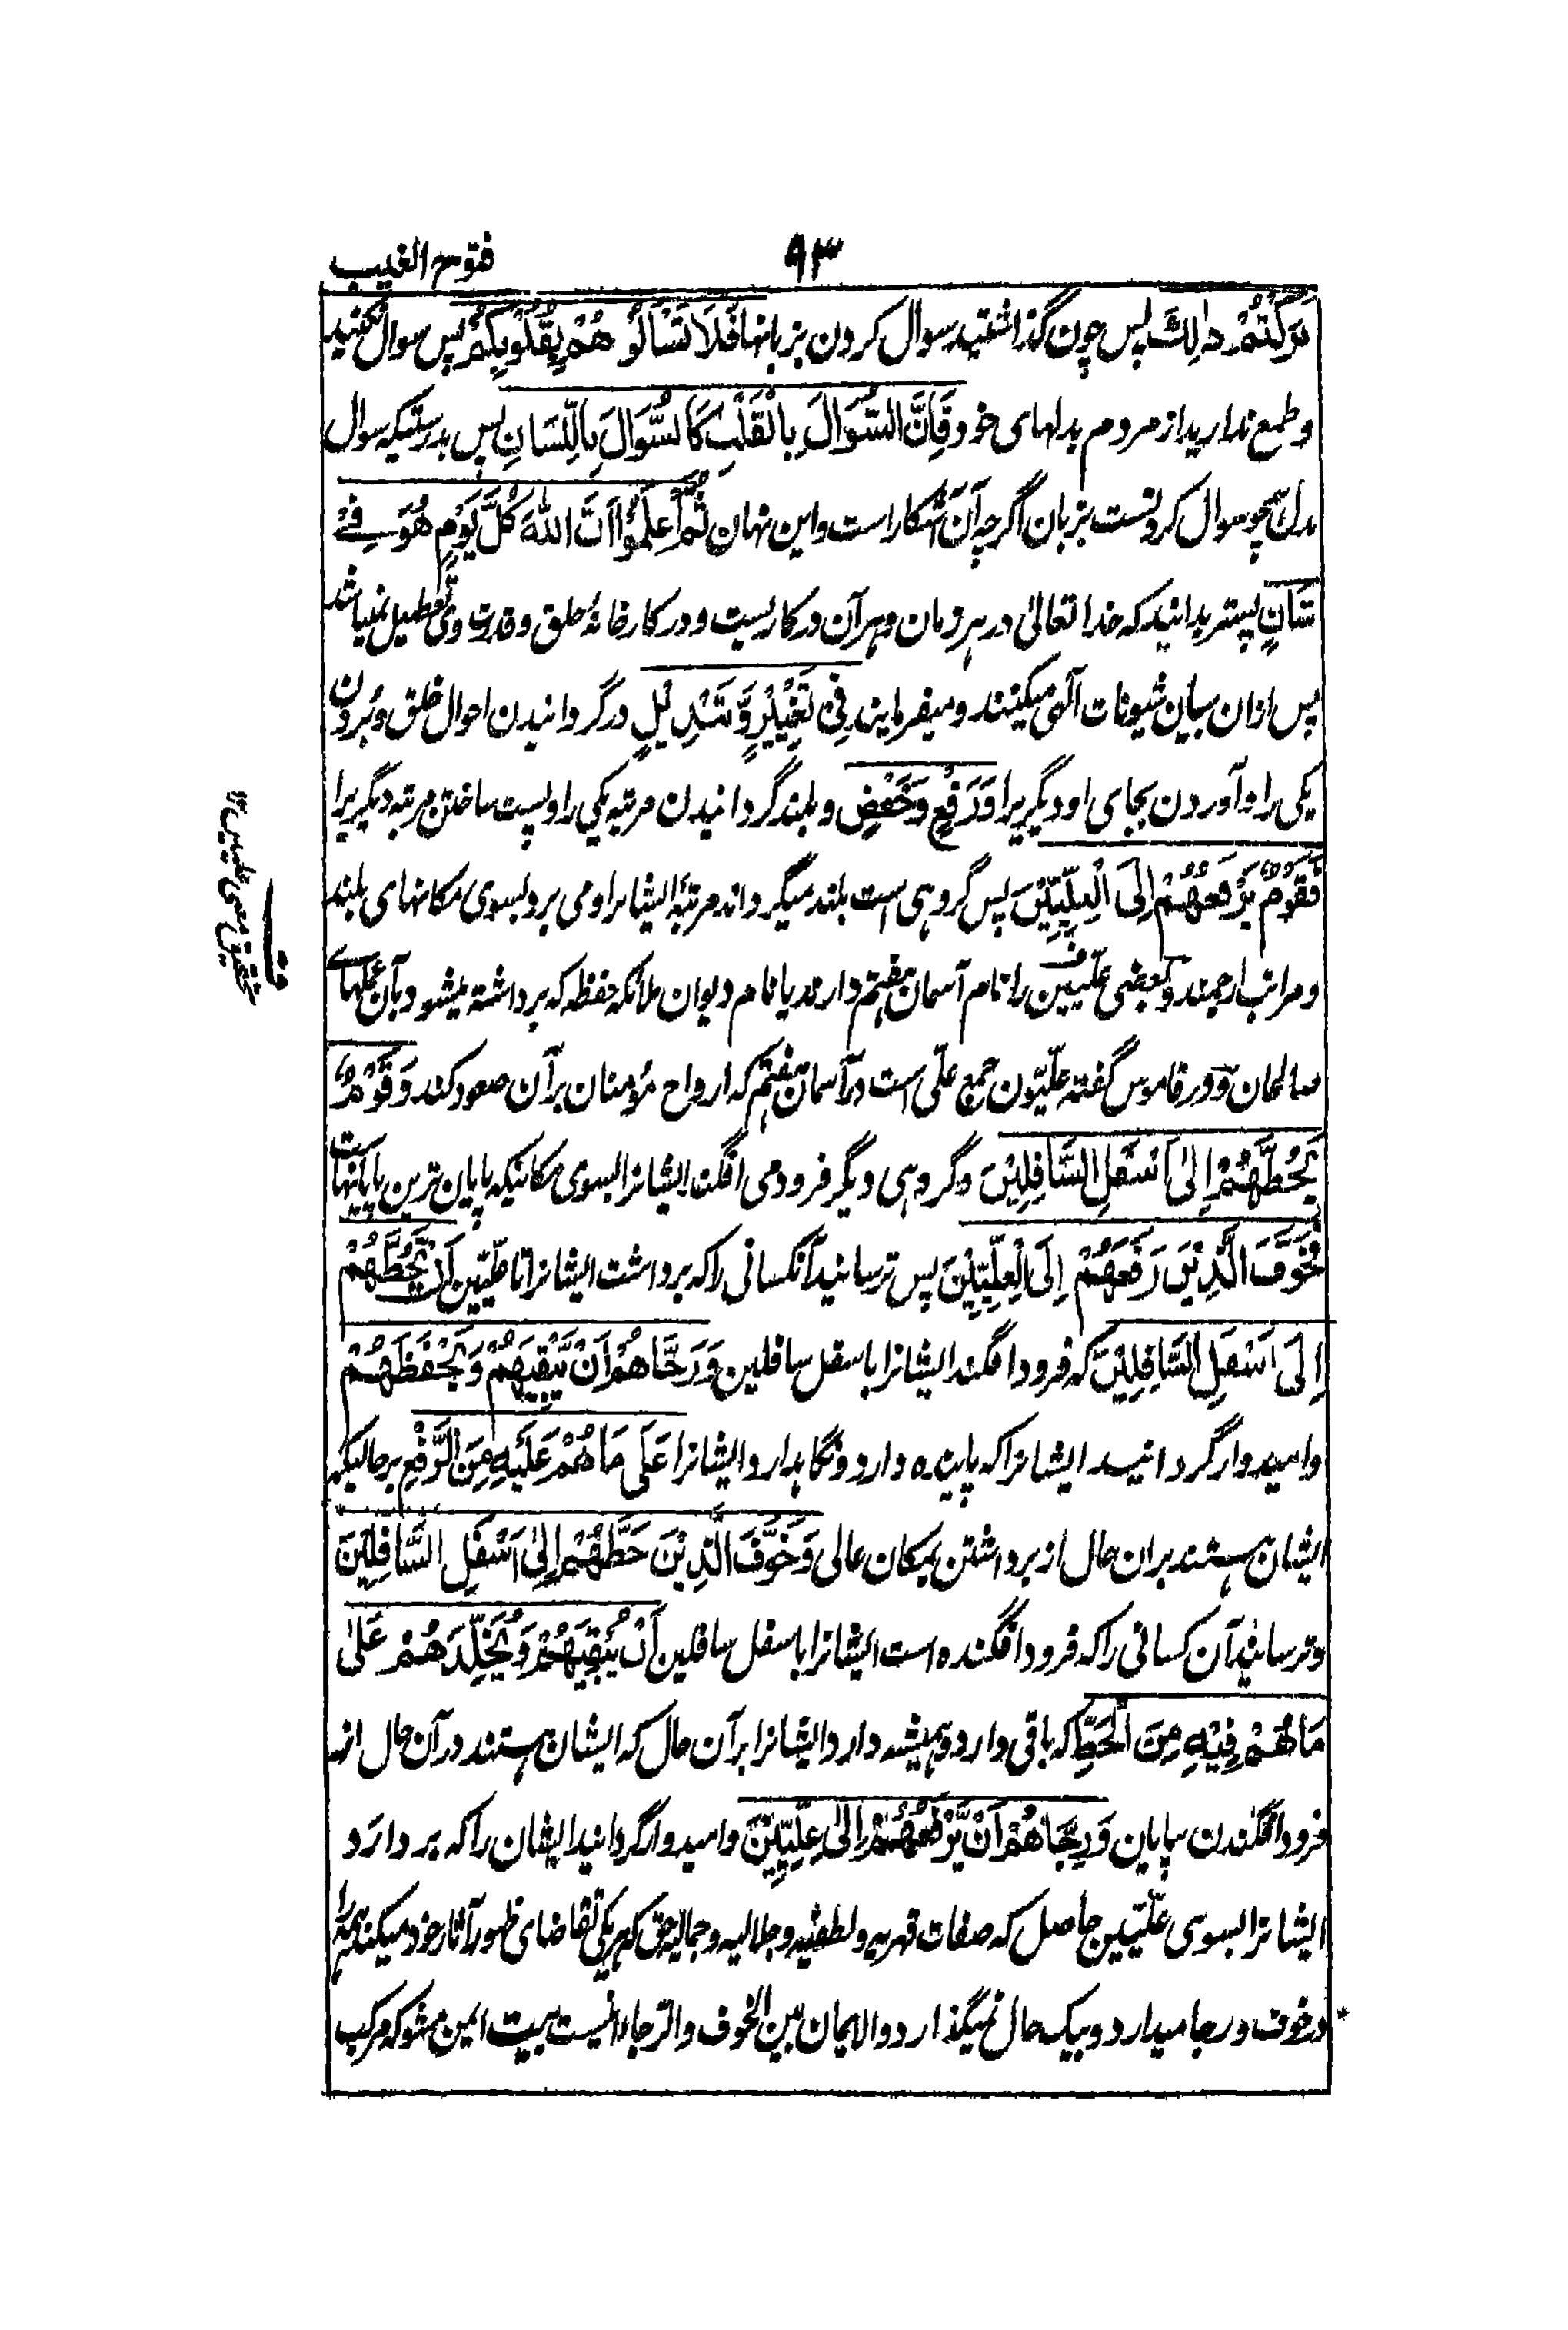 ۹۳ فتوح الغیب
تَرَكْتُمْ ذٰلِكَ پس چون گذاشتید سوال کردن بزبانها فَلَا تَسْأَلُوْهُمْ بِقُلُوْبِكُمْ پس سوال نکنید
و طمع ندارید از مردم بدلهای خود فَاِنَّ السُّوَالَ بِالْقَلْبِ كَالسُّوَالِ بِاللِّسَانِ پس بدرستیکه سوال
بدل همچو سوال کردنست بزبان اگرچه آن آشکار است و این نهان ثُمَّ اعْلَمُوْا اَنَّ اللهَ كُلَّ يَوْمٍ هُوَ فِيْ
شَانٍ پستر بدانید که خدا تعالیٰ در هر زمان و هر آن در کاریست و در کارخانهٔ خلق و قدرت وی تعطیل نمیباشد
پس ازان بیان شیونات الٰهی میکنند و میفرمایند فِيْ تَغْيِيْرٍ وَّ تَبْدِيْلٍ در گردانیدن احوال خلق و بردن
یکی را و آوردن بجای او دیگریرا وَ رَفْعٍ وَ خَفْضٍ و بلند گردانیدن مرتبه یکی را و پست ساختن مرتبه دیگریرا
فَقَوْمٌ يَرْفَعُهُمْ اِلَى الْعِلِّيِّيْنَ پس گروهی است بلند میگرداند مرتبهٔ ایشانرا و می برد بسوی مکانهای بلند
و مراتب ارجمند و بعضی علّیین را نام آسمان هفتم دارند یا نام دیوان ملائکه حفظه که برداشته میشود بآن عملهاے
صالحان و در قاموس گفته علّیّون جمع علّی است در آسمان هفتم که ارواح مؤمنان برآن صعود کند وَ قَوْمٌ
يَحُطُّهُمْ اِلٰى اَسْفَلِ السَّافِلِيْنَ و گروهی دیگر فرود می افگند ایشانرا بسوی مکانیکه پایان ترین پایانهاست
فَخَوَّفَ الَّذِيْنَ رَفَعَهُمْ اِلَى الْعِلِّيِّيْنَ پس ترسانید آنکسانی را که برداشت ایشانرا تا علّیّین اَنْ يَّحُطَّهُمْ
اِلَى اَسْفَلِ السَّافِلِيْنَ که فرود افگند ایشانرا باسفل سافلین وَ رَجَّاهُمْ اَنْ يُّبْقِيَهُمْ وَ يَحْفَظَهُمْ
و امیدوار گردانید ایشانرا که پاینده دارد و نگاهدارد ایشانرا عَلَى مَا هُمْ عَلَيْهِ مِنَ الرَّفْعِ بر حالیکه
ایشان هستند بران حال از برداشتن بمکان عالی وَ خَوَّفَ الَّذِيْنَ حَطَّهُمْ اِلٰى اَسْفَلِ السَّافِلِيْنَ
و ترسانید آن کسانی را که فرود افگنده است ایشانرا باسفل سافلین اَنْ يُّبْقِيَهُمْ وَ يُخَلِّدَهُمْ عَلٰى
مَا هُمْ فِيْهِ مِنَ الْحَطِّ که باقی دارد و همیشه دارد ایشانرا برآن حال که ایشان هستند در آن حال از
فرود افگندن بپایان وَ رَجَّاهُمْ اَنْ يَّرْفَعَهُمْ اِلٰى عِلِّيِّيْنَ و امیدوار گردانید ایشان را که بردارَد
ایشانرا بسوی علّیّین حاصل که صفات قهریه و لطفیه و جلالیه و جمالیه حق که هر یکی تقاضای ظهور آثار خود میکند همه را
در خوف و رجا میدارد و بیک حال نمیگذارد و الایمان بین الخوف والرجاء اینست بیت ایمن مشو که مرکب
ف
تحقیق معنی علیین ۱۲